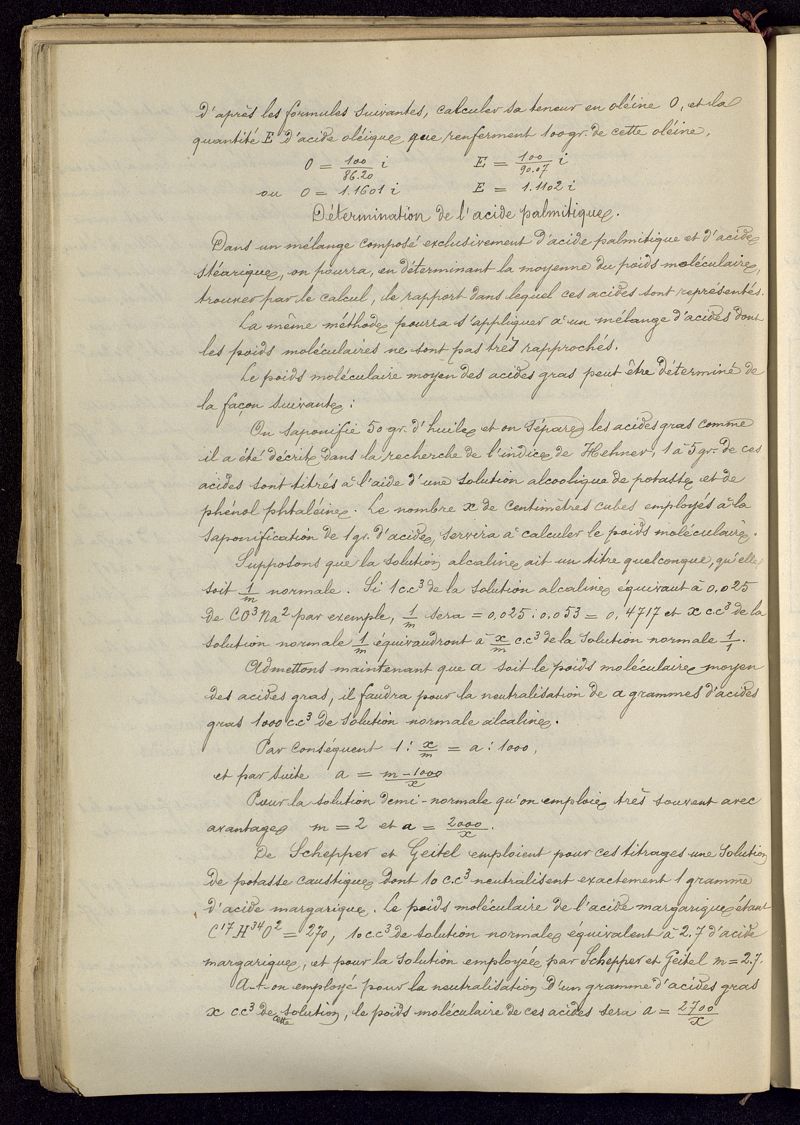 d'après les formules suivantes, calculer sa teneur en oléine O, et la
quantité E d'acide oléique que renferment 100 gr. de cette oléine,
O = 100/86.20 i E = 100/90.07 i
ou O = 1.1601 i E = 1.1102 i
Détermination de l'acide palmitique.
Dans un mélange composé exclusivement d'acide palmitique et d'acide
stéarique, on pourra, en déterminant la moyenne du poids moléculaire,
trouver par le calcul, le rapport dans lequel ces acides sont représentés.
La même méthode pourra s'appliquer à un mélange d'acides dont
les poids moléculaires ne sont pas très rapprochés.
Le poids moléculaire moyen des acides gras peut être déterminé de
la façon suivante :
On saponifie 50 gr. d'huile et on sépare les acides gras comme
il a été décrit dans la recherche de l'indice de Hehner, 1 à 5 gr. de ces
acides sont titrés à l'aide d'une solution alcoolique de potasse et de
phénol phtaléine. Le nombre x de centimètres cubes employés à la
saponification de 1 gr. d'acide, servira à calculer le poids moléculaire.
Supposons que la solution alcaline ait un titre quelconque, qu'elle
soit 1/m normale. Si 1 c.c³ de la solution alcaline équivaut à 0,025
de CO³Na² par exemple, 1/m sera = 0,025 : 0.053 = 0,4717 et x cc³ de la
solution normale 1/m équivaudront à x/m c.c³ de la solution normale 1/1.
Admettons maintenant que a soit le poids moléculaire moyen
des acides gras, il faudra pour la neutralisation de a grammes d'acides
gras 1000 c.c³ de solution normale alcaline.
Par conséquent 1 : x/m = a : 1000,
et par suite a = m-1000/x
Pour la solution demi-normale qu'on emploie très souvent avec
avantage m = 2 et a = 2000/x.
De Schepper et Geitel emploient pour ces titrages une solution
de potasse caustique dont 10 c.c³ neutralisent exactement 1 gramme
d'acide margarique. Le poids moléculaire de l'acide margarique étant
C¹⁷H³⁴O² = 270, 10 c.c³ de solution normale équivalent à 2.7 d'acide
margarique, et pour la solution employée par Schepper et Geitel m = 2.7.
A-t-on employé pour la neutralisation d'un gramme d'acides gras
x c.c³ de cette solution, le poids moléculaire de ces acides sera a = 2700/x